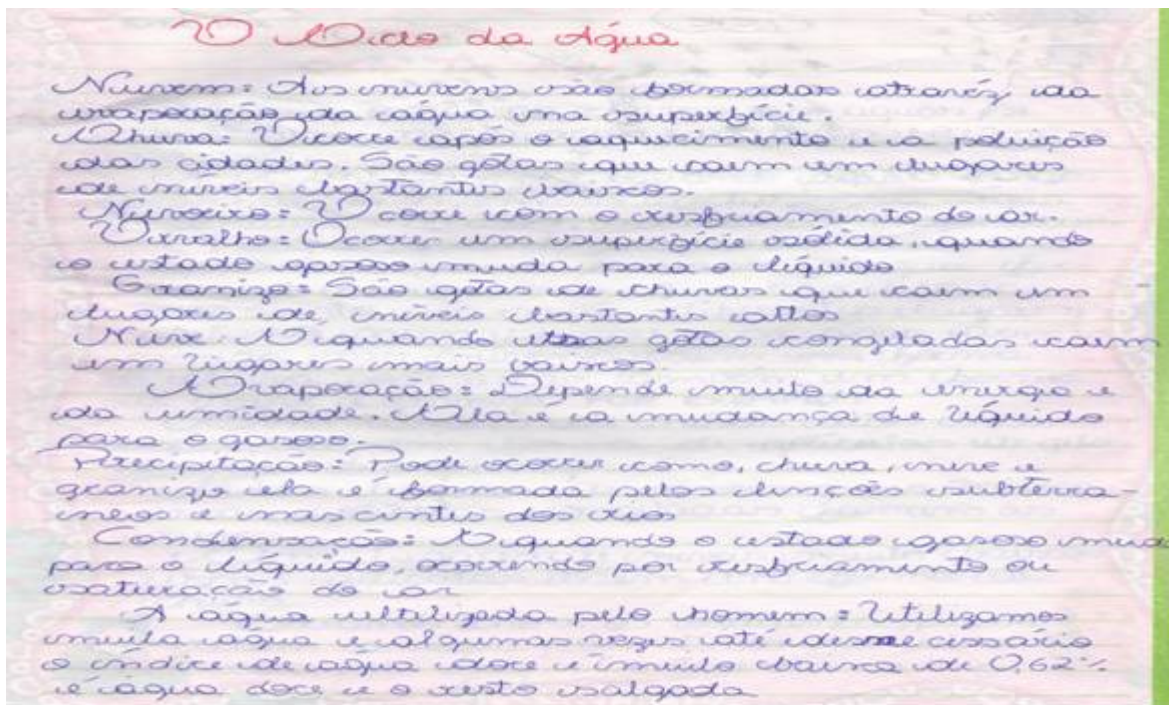 O Ciclo da Água
Nuvem: As nuvens são formadas atravéz da
evaporação da água na superfície.
Chuva: Ocorre após o aquecimento e a poluição
das cidades. São gotas que caem em lugares
de níveis bastantes baixos.
Nevoeiro: Ocorre com o resfriamento do ar.
Orvalho: Ocorre em superfície sólida, quando
o estado gasoso muda para o líquido
Granizo: São gotas de chuvas que caem em
lugares de níveis bastantes altos
Neve: É quando essas gotas congeladas caem
em lugares mais baixos.
Evaporação: Depende muito da energia e
da umidade. Ela é a mudança de líquido
para o gasoso.
Precipitação: Pode ocorrer como, chuva, neve e
granizo ela é formada pelos lençóis subterra-
neos e nascentes dos rios
Condensação: É quando o estado gasoso muda
para o líquido, ocorrendo por resfriamento ou
saturação do ar
A água ultilizada pelo homem: Utilizamos
muita água e algumas vezes até desnecessário
o índice de água doce é muito baixa de 0,62%
é água doce e o resto salgada